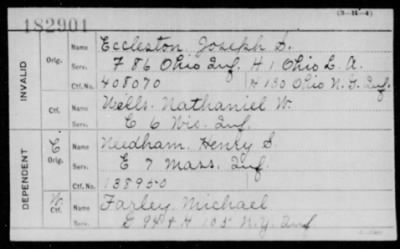 (3-164)
182901
INVALID
Orig.
Name Eccleston, Joseph S.
Serv. F 86 Ohio Inf. H 1 Ohio L. A.
Ctf. No. 408070 H 130 Ohio N. G. Inf.
Ctf.
Name Wells. Nathaniel W.
Serv. C 6 Wis. Inf.
DEPENDENT
Orig.
Name Needham, Henry S
Serv. E 7 Mass. Inf.
Ctf. No. 138950
Ctf.
Name Farley Michael
Serv. & H 105 N.Y. Inf